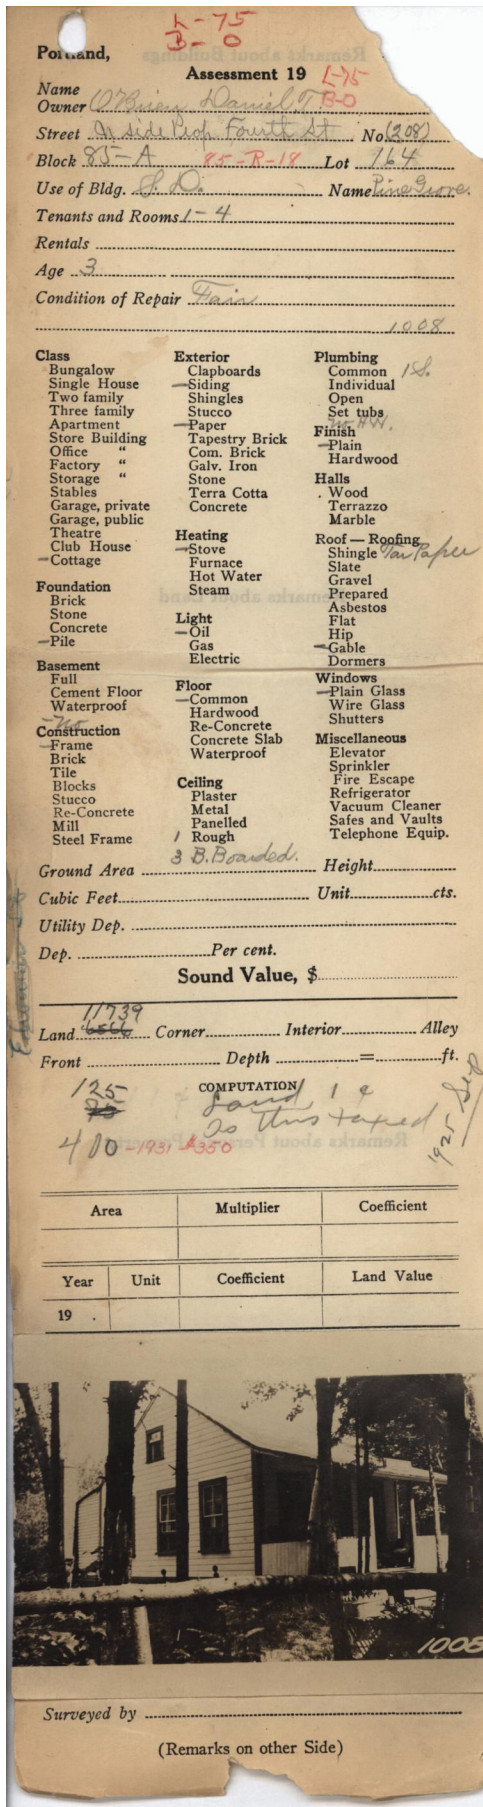 L-75
B-0
Portland,
Assessment 19
L-75
B-0
Name
Owner O'Brien Daniel T.
Street N side Prop Fourth St No. (208)
Block 85-A 85-R-18 Lot 164
Use of Bldg. S. D. Name Pine Grove.
Tenants and Rooms 1-4
Rentals
Age 3
Condition of Repair Fair
1008
Class
Bungalow
Single House
Two family
Three family
Apartment
Store Building
Office "
Factory "
Storage "
Stables
Garage, private
Garage, public
Theatre
Club House
Cottage
Foundation
Brick
Stone
Concrete
Pile
Basement
Full
Cement Floor
Waterproof
No
Construction
Frame
Brick
Tile
Blocks
Stucco
Re-Concrete
Mill
Steel Frame
Exterior
Clapboards
Siding
Shingles
Stucco
Paper
Tapestry Brick
Com. Brick
Galv. Iron
Stone
Terra Cotta
Concrete
Heating
Stove
Furnace
Hot Water
Steam
Light
Oil
Gas
Electric
Floor
Common
Hardwood
Re-Concrete
Concrete Slab
Waterproof
Ceiling
Plaster
Metal
Panelled
1 Rough
3 B. Boarded.
Plumbing
Common 1 S.
Individual
Open
Set tubs
No H.W.
Finish
Plain
Hardwood
Halls
Wood
Terrazzo
Marble
Roof — Roofing
Shingle Tar Paper
Slate
Gravel
Prepared
Asbestos
Flat
Hip
Gable
Dormers
Windows
Plain Glass
Wire Glass
Shutters
Miscellaneous
Elevator
Sprinkler
Fire Escape
Refrigerator
Vacuum Cleaner
Safes and Vaults
Telephone Equip.
Ground Area Height
Cubic Feet Unit cts.
Utility Dep.
Dep. Per cent.
Sound Value, $
11739
Land Corner Interior Alley
Front Depth = ft.
COMPUTATION
125
Land 1 ¢
Is this taxed
400 -1931 $350
1925 Sep
Area Multiplier Coefficient
Year Unit Coefficient Land Value
19 .
1008
Surveyed by
(Remarks on other Side)